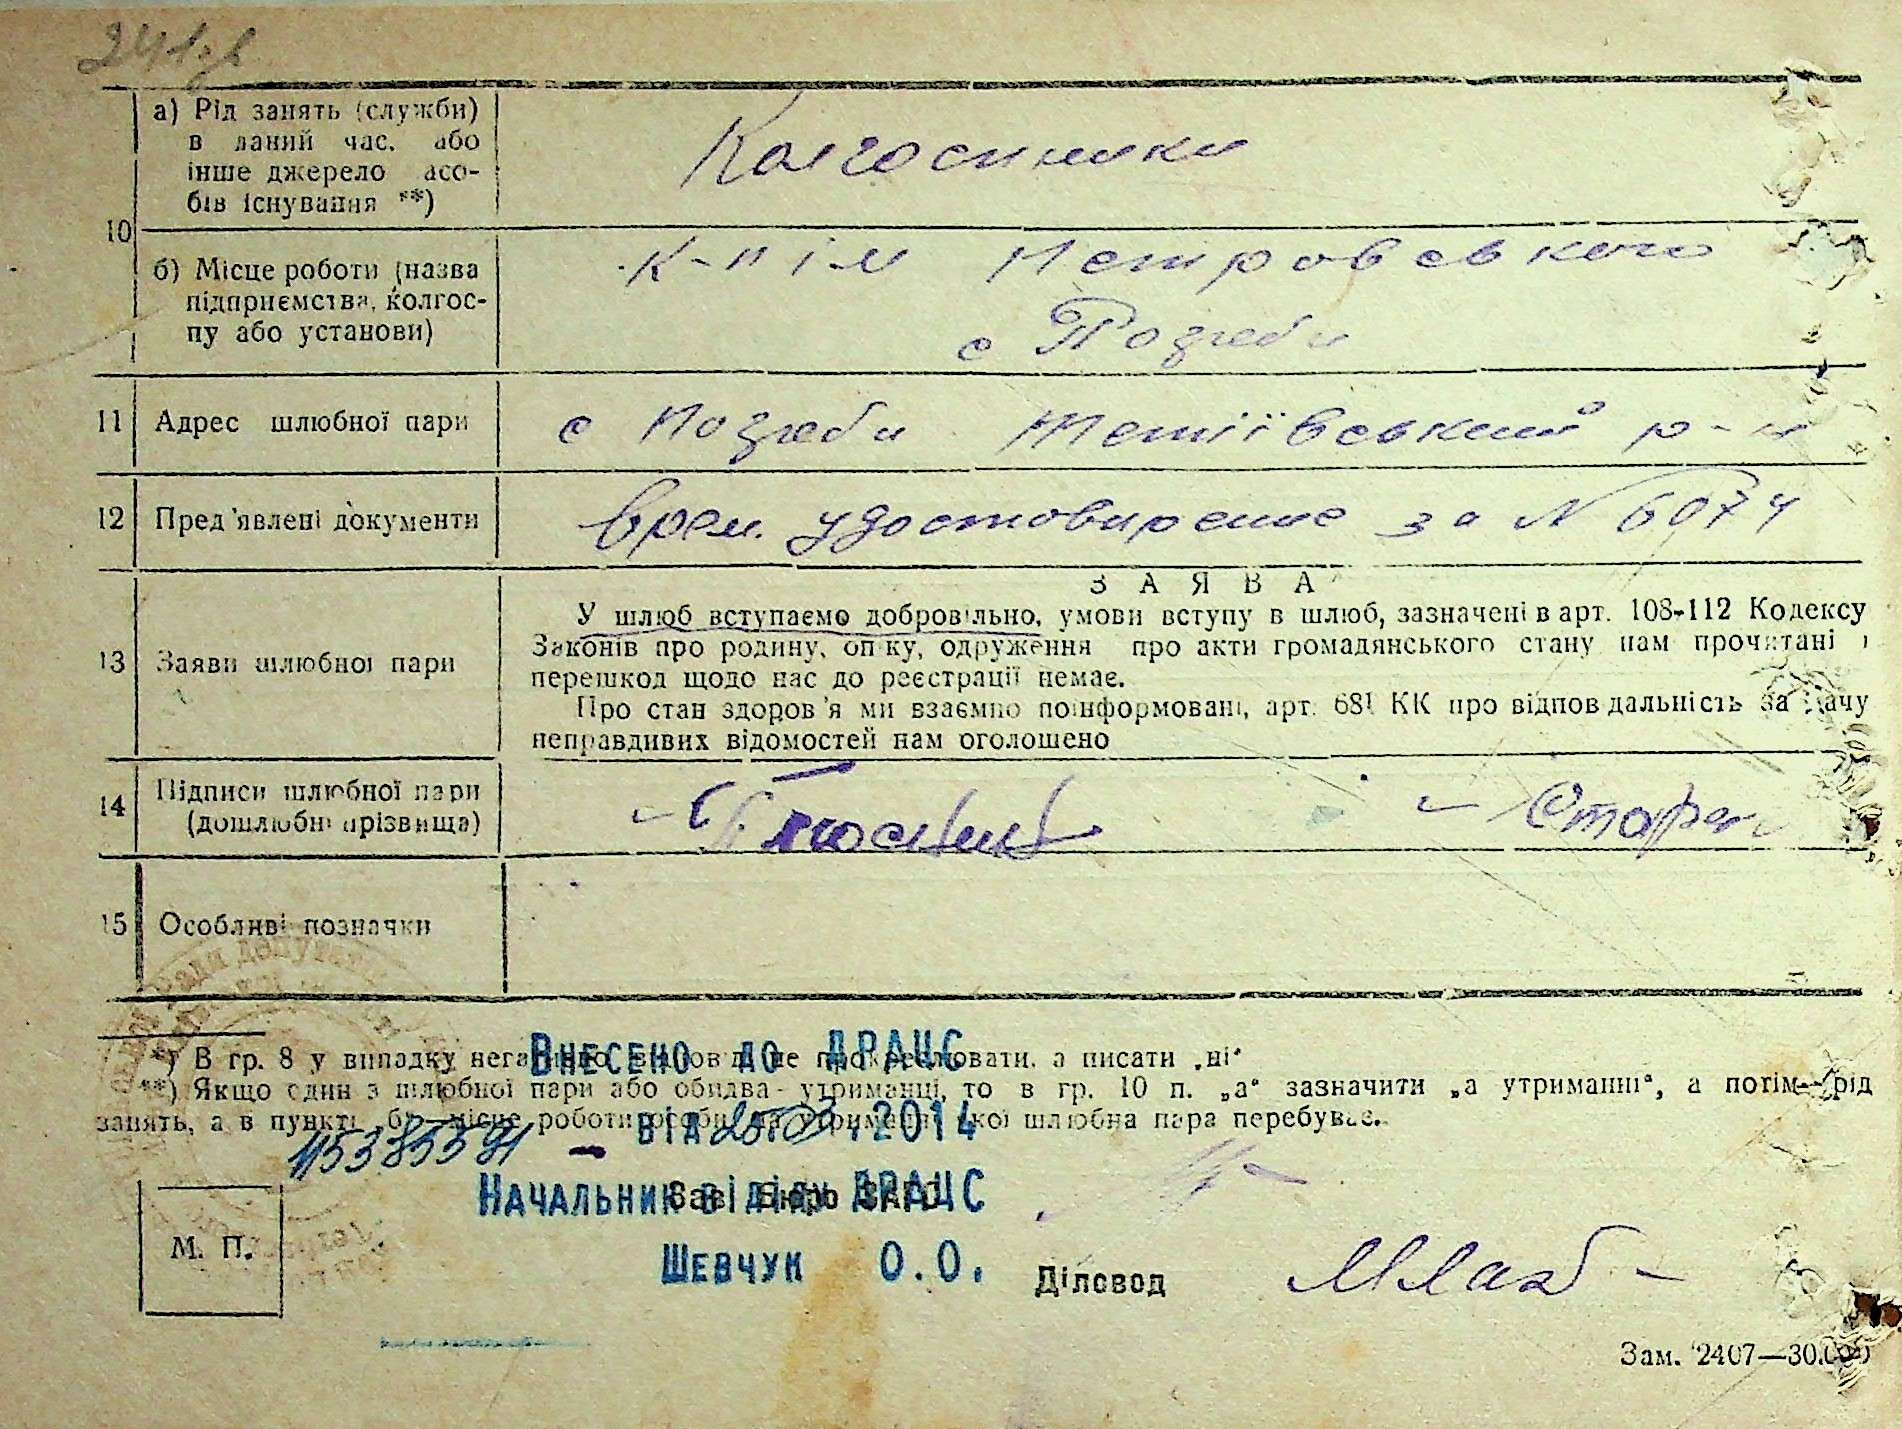 10
а) Рід занять (служби)
в даний час, або
інше джерело засо-
бів існування **)
Колгоспники
б) Місце роботи (назва
підприємства, колгос-
пу або установи)
к-п ім Петровського
с Погреби
11 Адрес шлюбної пари
с Погреби Тетіївський р-н
12 Пред'явлені документи
врем. удостовирение за N 6074
13 Заяви шлюбної пари
ЗАЯВА
У шлюб вступаємо добровільно, умови вступу в шлюб, зазначені в арт. 108-112 Кодексу
Законів про родину, опіку, одруження про акти громадянського стану нам прочитані і
перешкод щодо нас до реєстрації немає.
Про стан здоров'я ми взаємно поінформовані, арт. 681 КК про відповідальність за дачу
неправдивих відомостей нам оголошено
14 Підписи шлюбної пари
(дошлюбні прізвища)
15 Особливі позначки
*) В гр. 8 у випадку негативної відповіді не прокреслювати, а писати „ні“
**) Якщо один з шлюбної пари або обидва - утриманці, то в гр. 10 п. „а“ зазначити „а утриманні“, а потім рід
занять, а в пункті „б“ місце роботи особи, на утриманні якої шлюбна пара перебуває.
Внесено до ДРАЦС
від 2014
Начальник відділу ДРАЦС
Шевчук О.О.
Зав. Бюро ЗАГС
М. П.
Діловод
Зам. 2407—30.000